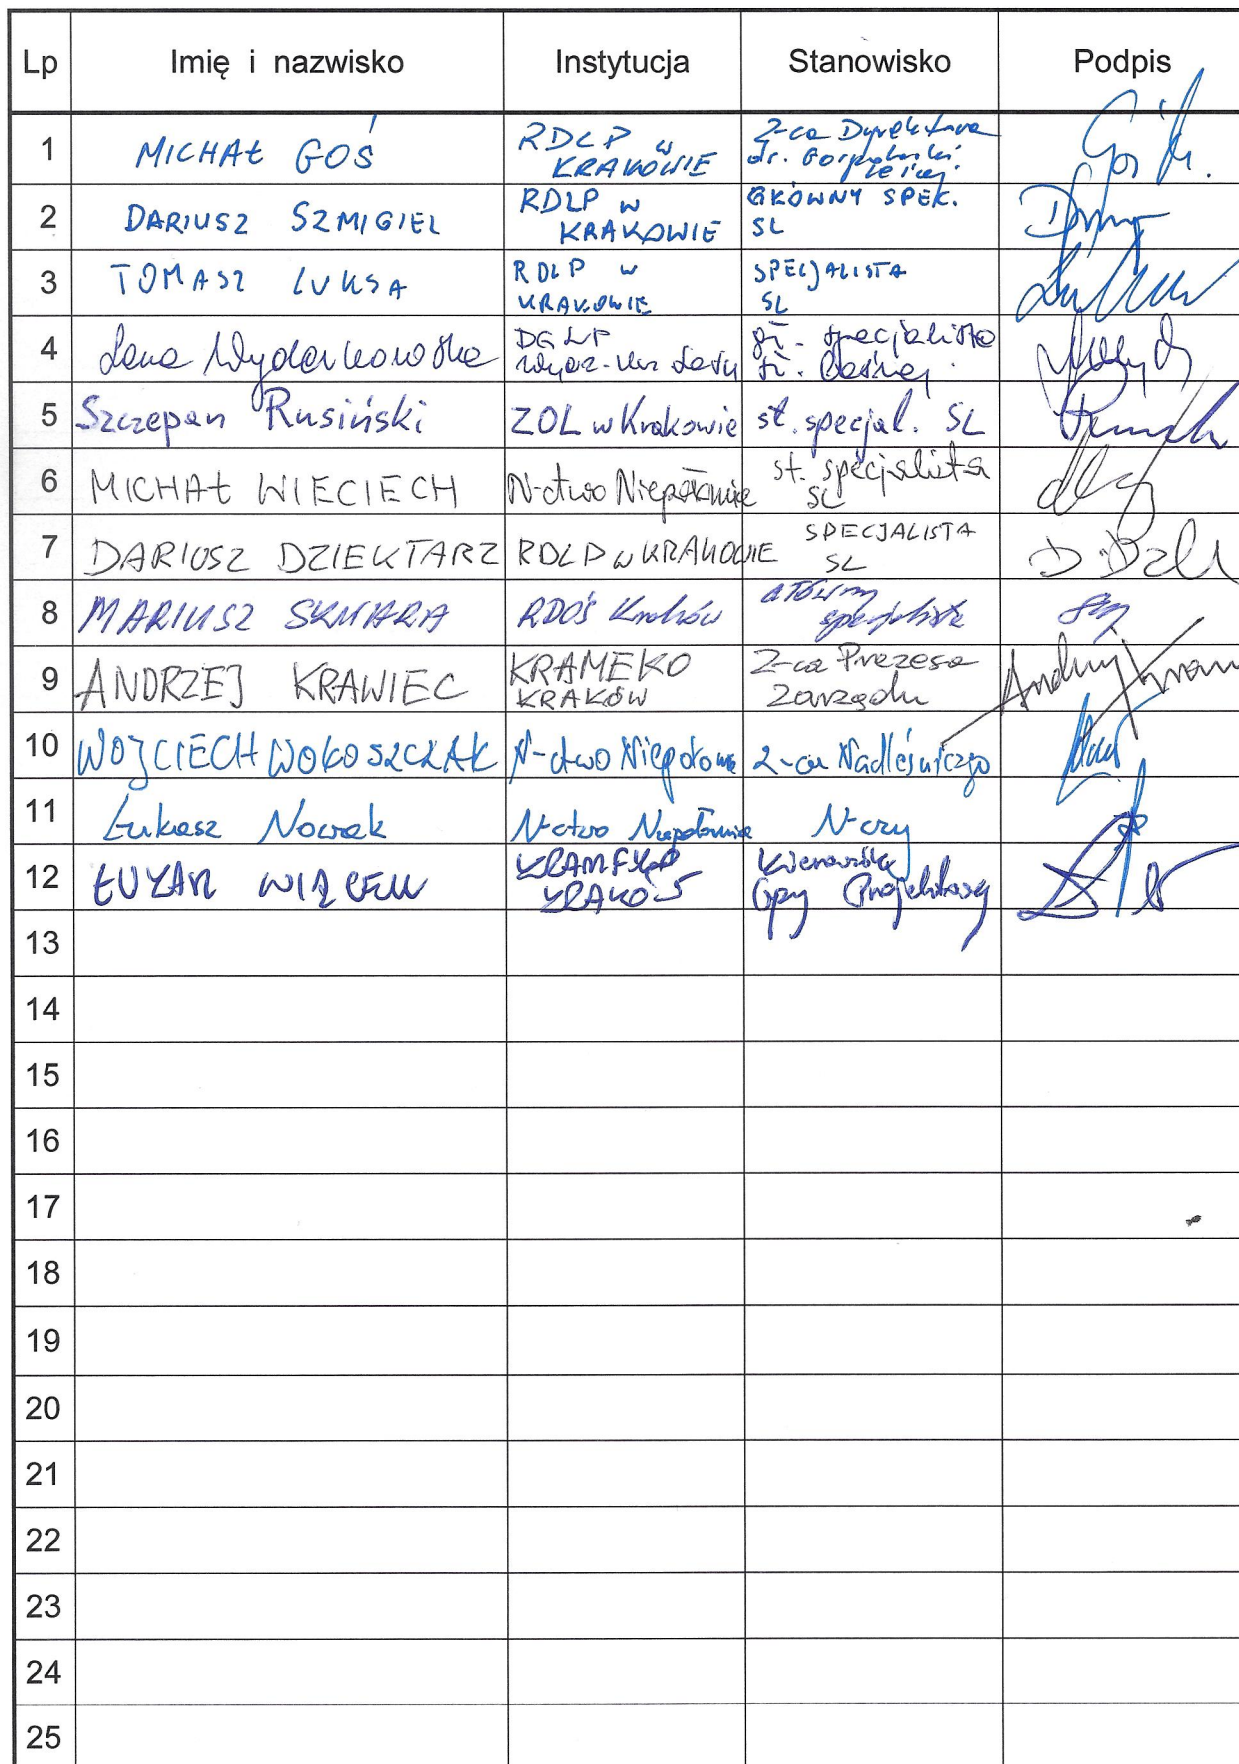 Lp Imię i nazwisko Instytucja Stanowisko Podpis
1 MICHAŁ GOŚ RDLP w KRAKOWIE Z-ca Dyrektora ds. Gospodarki Leśnej
2 DARIUSZ SZMIGIEL RDLP w KRAKOWIE GŁÓWNY SPEK. SL
3 TOMASZ LUKSA RDLP w KRAKOWIE SPECJALISTA SL
4 DGLP specjalista
5 Szczepan Rusiński ZOL w Krakowie st. specjal. SL
6 MICHAŁ WIECIECH N-ctwo Niepołomice st. specjalista SL
7 DARIUSZ DZIEKTARZ RDLP w KRAKOWIE SPECJALISTA SL
8 MARIUSZ SKWARA RDOŚ Kraków główny specjalista
9 ANDRZEJ KRAWIEC KRAMEKO KRAKÓW Z-ca Prezesa Zarządu
10 WOJCIECH WOŁOSZCZAK N-ctwo Niepołomice Z-ca Nadleśniczego
11 Łukasz Nowak N-ctwo Niepołomice N-czy
12 KRAMEKO KRAKÓW Kierownik
13
14
15
16
17
18
19
20
21
22
23
24
25